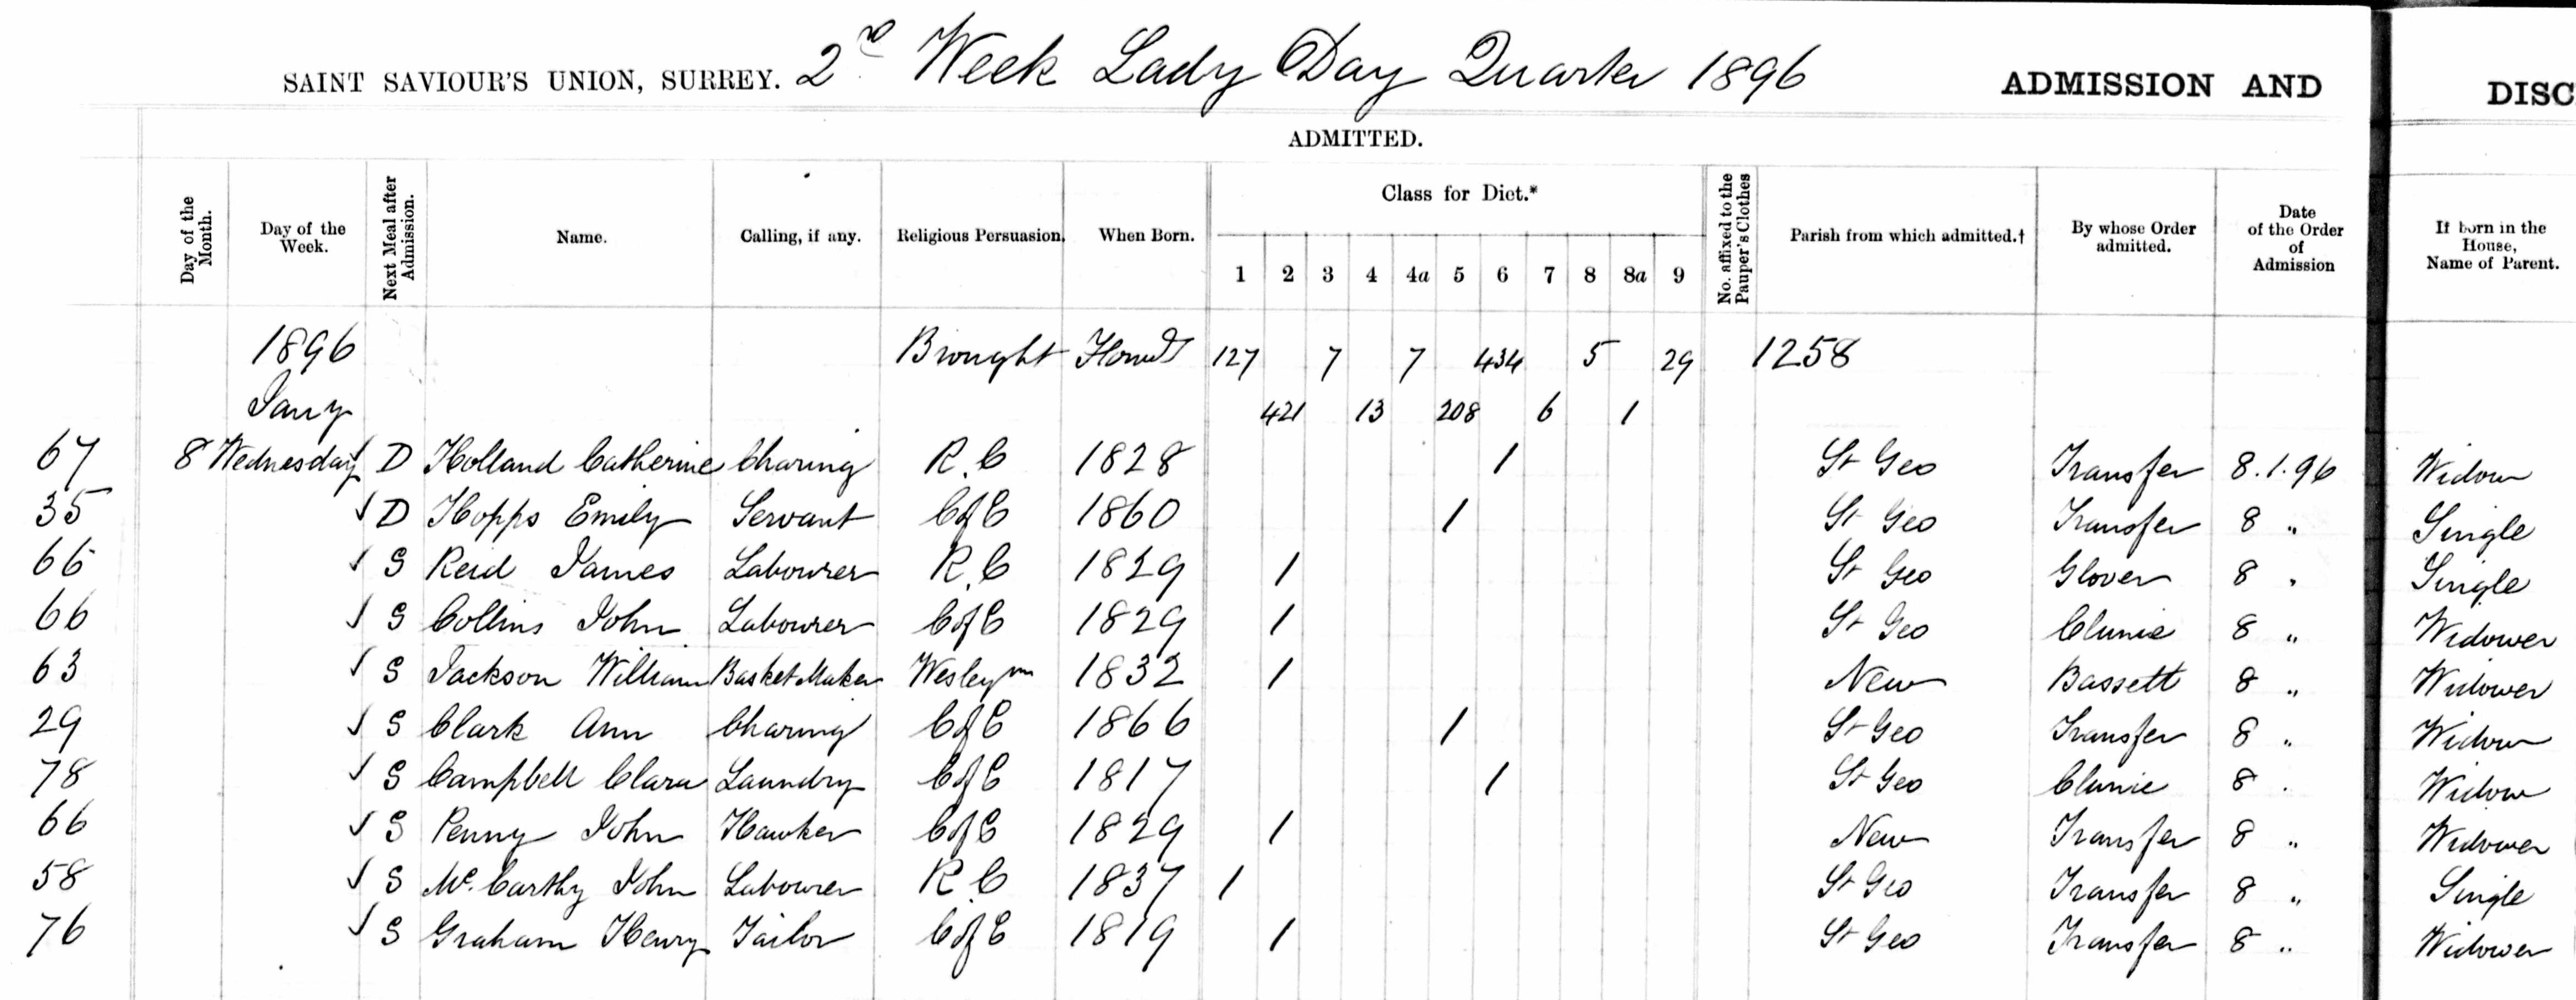 SAINT SAVIOUR'S UNION, SURREY. 2nd Week Lady Day Quarter 1896 ADMISSION AND DISC
ADMITTED.
Day of the Month. Day of the Week. Next Meal after Admission. Name. Calling, if any. Religious Persuasion. When Born. Class for Diet.* No. affixed to the Pauper's Clothes Parish from which admitted.† By whose Order admitted. Date of the Order of Admission If born in the House, Name of Parent.
1 2 3 4 4a 5 6 7 8 8a 9
1896 Brought Forwd 127 7 7 434 5 29 1258
Jany 421 13 208 6 1
67 8 Wednesday √ D Holland Catherine Charing R.C 1828 / St Geo Transfer 8.1.96 Widow
35 √ D Hopps Emily Servant C of E 1860 / St Geo Transfer 8 " Single
66 √ S Reid James Labourer R.C 1829 / St Geo Glover 8 " Single
66 √ S Collins John Labourer C of E 1829 / St Geo Clunie 8 " Widower
63 √ S Jackson William Basket Maker Wesleyan 1832 / New Bassett 8 " Widower
29 √ S Clark Ann Charing C of E 1866 / St Geo Transfer 8 " Widow
78 √ S Campbell Clara Laundry C of E 1817 / St Geo Clunie 8 " Widow
66 √ S Penny John Hawker C of E 1829 / New Transfer 8 " Widower
58 √ S Mc.Carthy John Labourer R.C 1837 / St Geo Transfer 8 " Single
76 √ S Graham Henry Tailor C of E 1819 / St Geo Transfer 8 " Widower